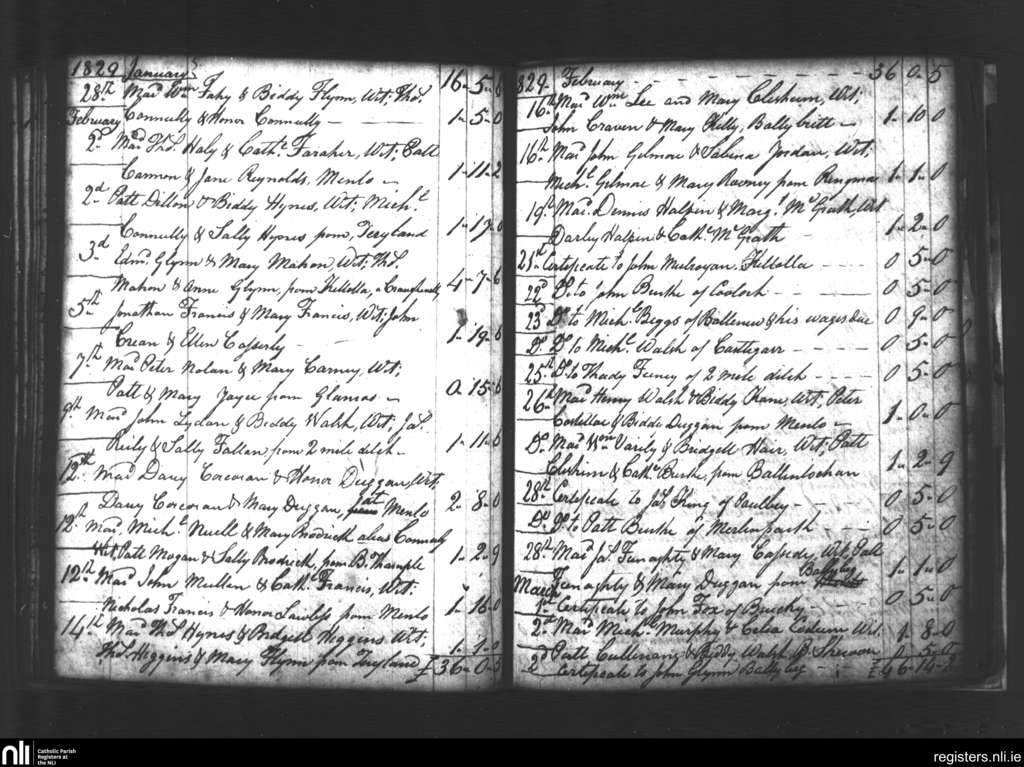 1829 January
16 - 5 - 6
28th Mard Wm Fahy & Biddy Flynn, Wit; Thos
February Connelly & Honor Connelly 1 - 5 - 0
2d Mard Thos Haly & Cathe Faraher, Wit; Patt
Cannon & Jane Reynolds, Menlo 1 - 11 - 2
2d Patt Dillon & Biddy Hynes, Wit; Michl
Connelly & Sally Hynes from Terryland
3d Edmd Glynn & Mary Mahon, Wit; Thos
Mahon & Anne Glynn, from Killolla, 4 - 7 - 6
5th Jonathan Francis & Mary Francis, Wit; John
Crean & Ellen Casserly 1 - 19 - 6
7th Mard Peter Nolan & Mary Carney, Wit;
Patt & Mary Joyce from Glanas 0 15 - 6
9th Mard John Lydan & Biddy Walsh, Wit; Jas
Reily & Sally Fallan, from 2 mile ditch 1 - 11 - 6
12th Mard Darcy Corcoran & Honor Duggan, Wit;
Darcy Corcoran & Mary Duggan, at Menlo 2 - 8 - 0
12th Mard Michl Nuell & Mary Brodrick alias Connealy
Wit; Patt Mogan & Sally Brodrick, from B. Thample 1 - 2 - 9
12th Mard John Mullen & Cathe Francis, Wit:
Nicholas Francis & Honor Lawless from Menlo 1 - 16 - 0
14th Mard Thos Hynes & Bridget Higgins Wit;
Thos Higgins & Mary Flynn from Teryland
£36 - 0 - 5
1829 February 36 0 - 5
16th Mard Wm Lee and Mary Clesham, Wit;
John Craven & Mary Kelly, Ballybritt 1 - 10 0
16th Mard John Gilmore & Sabina Jordan, Wit;
Michl Gilmore & Mary Rooney from 1 - 1 - 0
19th Mard Dennis Halpin & Margt McGrath, Wit
Darley Halpin & Cathe McGrath 1 - 2 - 0
21st Certificate to John Mulroyan, Killolla 0 5 - 0
22d Do to John Burke of Cooloch 0 5 - 0
23d Do to Michl Beggs of & his wages due 0 9 - 0
Do Do to Michl Walsh of Castlegarr 0 5 - 0
25th Do to Thady Feeney of 2 mile ditch 0 5 - 0
26th Mard Henry Walsh & Biddy Kane, Wit; Peter
& Biddy Duggan from Menlo 1 - 0 - 0
Do Mard Wm Varily & Bridgett Hair, Wit; Patt
Clesham & Cathe Burke, from 1 - 2 - 9
28th Certificate to Jas King of 0 5 - 0
Do Do to Patt Burke of Merlin park 0 5 - 0
28th Mard Jas Fenaghty & Mary Cassedy, Wit; Patt
Fenaghty & Mary Duggan from 1 - 1 - 0
March
1st Certificate to John Fox of 0 5 - 0
2d Mard Michl Murphy & Celia Wit.
Patt Cullenane & Biddy Walsh 1 - 8 - 0
2d Certificate to John Glynn 0 5 - 0
nli Catholic Parish Registers at the NLI
registers.nli.ie